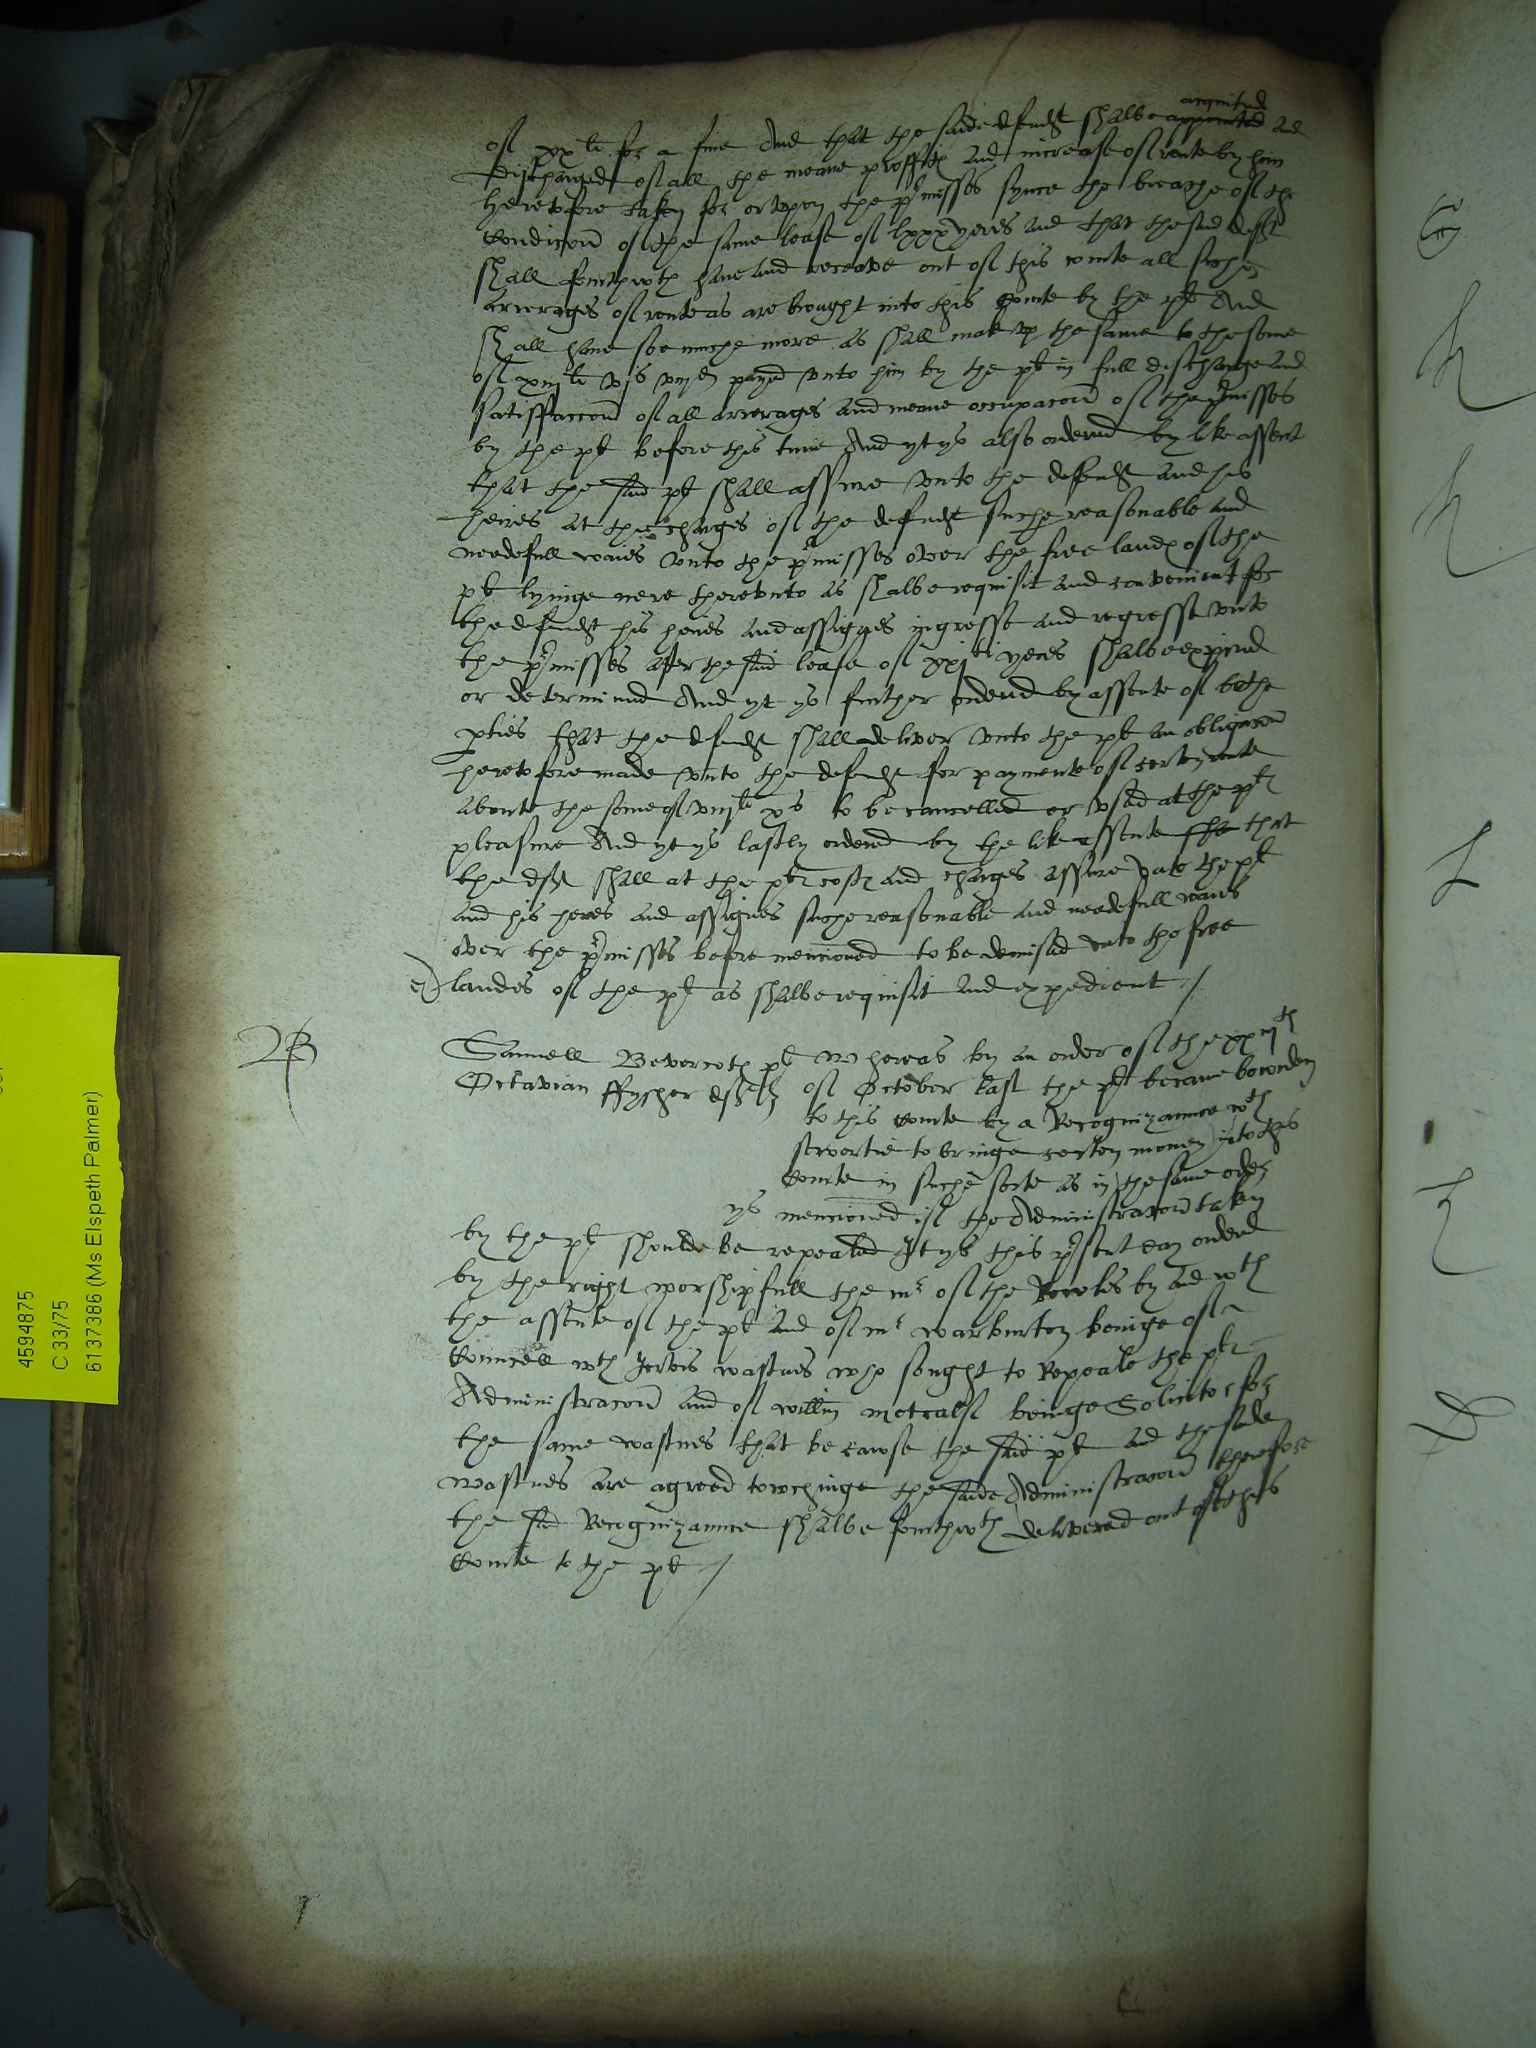 acquited
of xx li for a fine And that the saide defendt shalbe appointed and
discharged of all the meane proffittes and increase of rente by him
heretofore taken for or vpon the pmisses synce the breache of the
Condicon of the same lease of lxxx yeres and that the said deft
shall forthwth have and receave out of this courte all suche
arrerages of rente as are brought into this Courte by the plt And
shall have soe muche more as shall make vp the same to the some
of xiij li vjs viijd payed vnto him by the plt in full discharge and
satisffaccon of all arrerages and meane occupacon of the pmisses
by the plt before this time And yt ys also ordered by like assent
that the said plt shall assure vnto the defendt and his
heires at the charges of the defendt suche reasonable and
needefull waies vnto the pmisses over the free landes of the
plt lyinge nere therevnto as shalbe requisit and convenient for
the defendt his heires and assignes ingresse and regresse vnto
the pmisses after the said lease of xxj ti yeres shalbe expired
or determined And yt ys further ordered by assente of bothe
pties that the defendt shall deliver vnto the plt an obligacon
heretofore made vnto the defendt for paymente of certen rente
aboute the some of viij li xs to be cancelled or vsed at the pltes
pleasure And yt ys lastly ordered by the like assente the that
the deft shall at the pltes costes and charges assure vnto the plt
and his heires and assignes suche reasonable and needefull waies
over the pmisses before mencioned to be demised vnto the free
landes of the plt as shalbe requisit and expedient /
B
Samuell Bevercoth plt Whereas by an order of the xxvjth
Octavian ffyssher deft of October last the plt became bownden
to this Courte by a Recognizaunce wth
suertie to bringe certen money into this
Courte in suche sorte as in the same order
ys mencioned if the Administracon taken
by the plt shoulde be repealed It ys this psent day ordered
by the right worshipfull the mr of the Rowles by and wth
the assente of the plt and of mr Warburton beinge of
Councell wth Jervis Wastnes who sought to Repeale the pltes
Administracon and of Willm Metcalf beinge Solicitor for
the same Wastnes that becawse the said plt and the saide
Wastnes are agreed towchinge the saide Administracon therefore
the said Recognizaunce shalbe forthwth delivered out of this
Courte to the plt /
4594875
C 33/75
6137386 (Ms Elspeth Palmer)